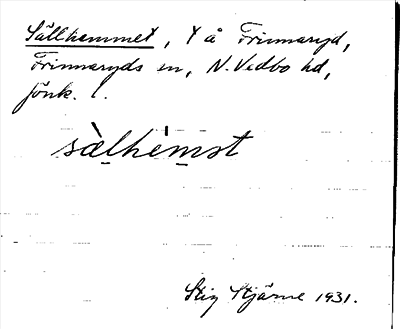 Sällhemmet, t å Frinnaryd,
Frinnaryds sn, N. Vedbo hd,
Jönk. l.
sæ̀lhémət
Stig Stjärne 1931.